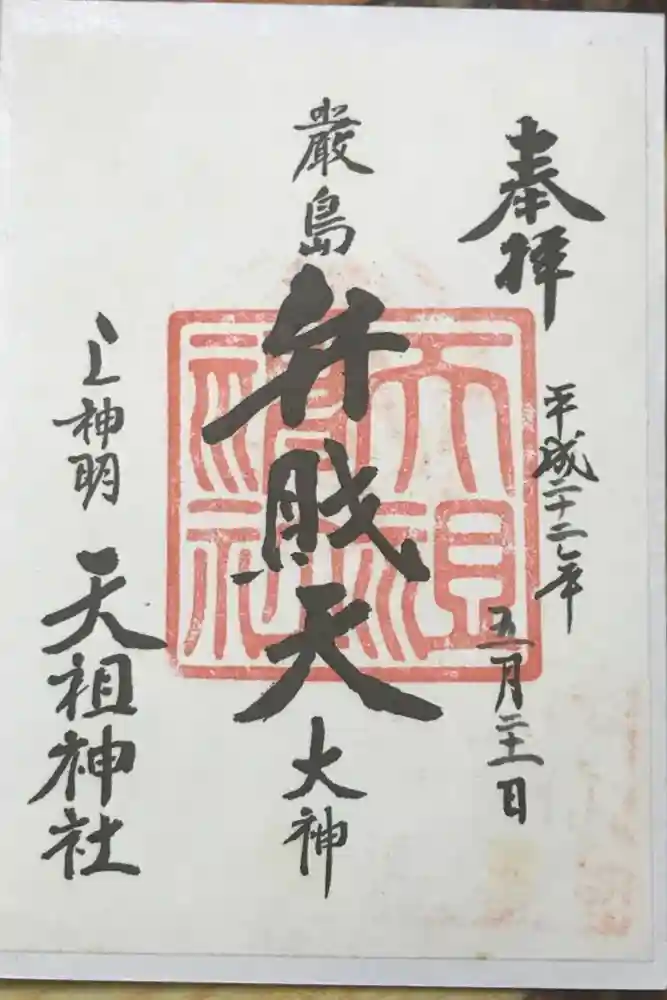 奉拝
平成二十二年
五月二十一日
厳島
弁財天
大神
上神明
天祖神社
天祖
神社